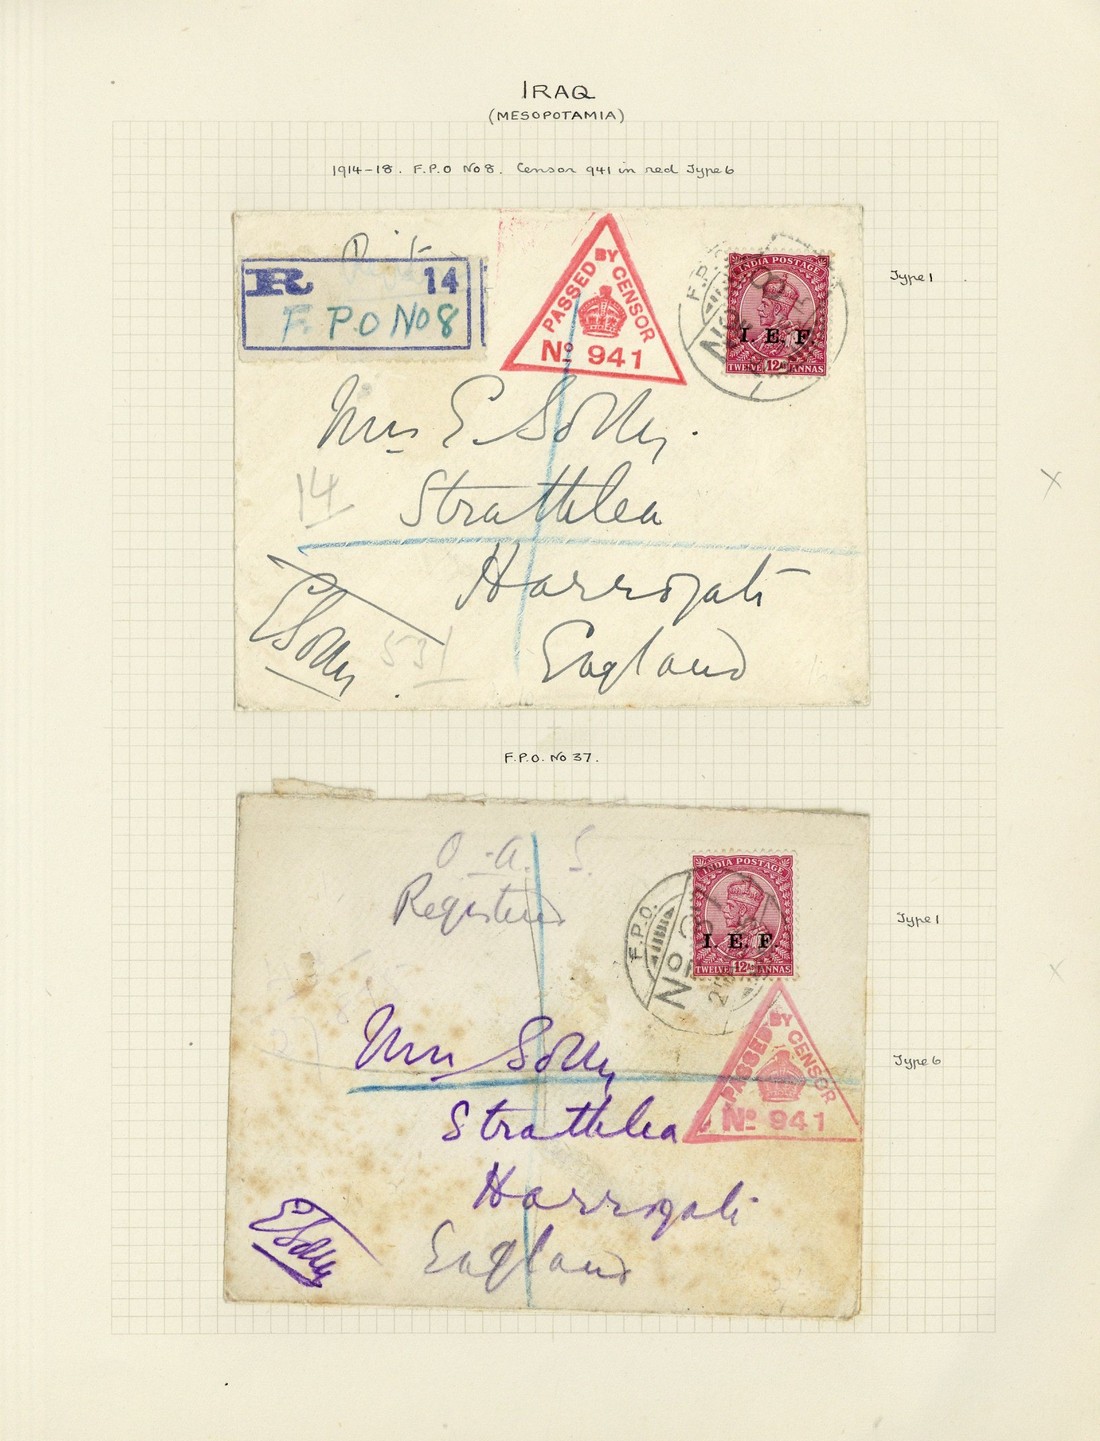 IRAQ
(MESOPOTAMIA)
1914-18. F.P.O No 8. Censor 941 in red Type 6
R 14
F. P.O No 8
PASSED BY CENSOR
No 941
F.P.O.
No
INDIA POSTAGE
I. E. F
TWELVE 12As ANNAS
Type 1
Mrs E Solly.
14
Strathlea
Harrogate
England
ESolly
531
F.P.O. No 37.
O.A.S.
Registered
F.P.O.
No 37
INDIA POSTAGE
I. E. F
TWELVE 12As ANNAS
Type 1
PASSED BY CENSOR
No 941
Type 6
Mrs Solly
Strathlea
Harrogate
England
ESolly